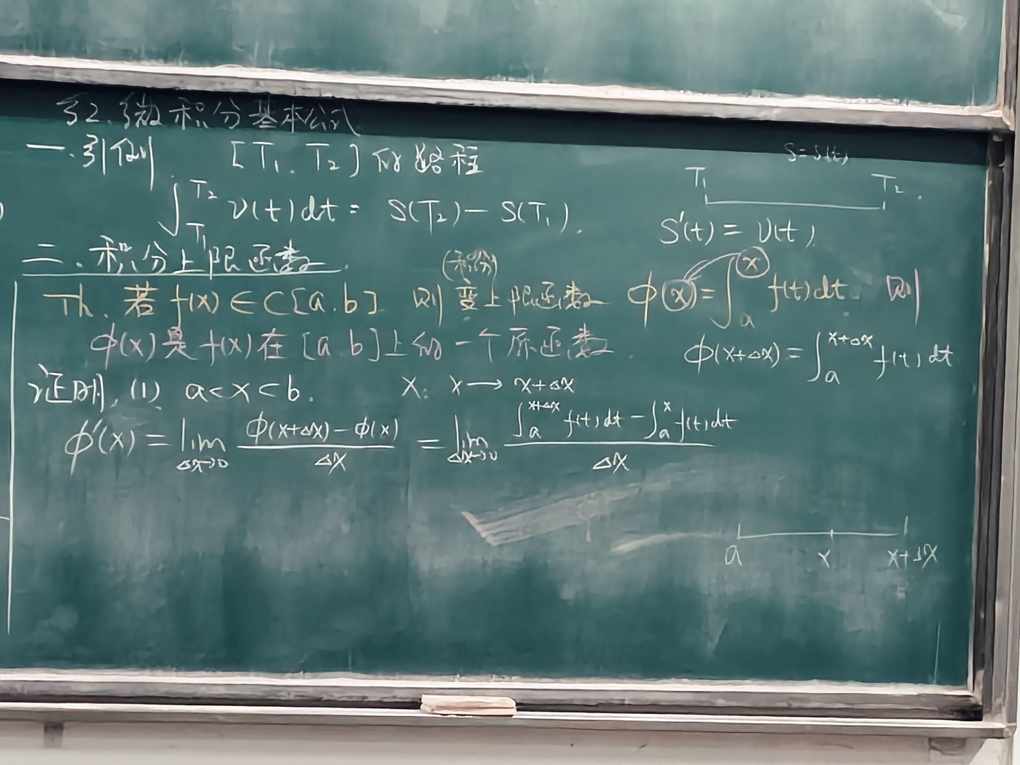 §2.微积分基本公式
一.引例 [T₁, T₂]的路程
S=S(t)
T₁ T₂
∫_{T₁}^{T₂} v(t)dt = S(T₂) − S(T₁).
S′(t) = v(t)
二.积分上限函数
(积分)
Th. 若f(x)∈C[a.b] 则变上限函数 ϕ(x)=∫_a^x f(t)dt 则
ϕ(x)是f(x)在[a b]上的一个原函数.
ϕ(x+Δx) = ∫_a^{x+Δx} f(t)dt
证明, (1) a<x<b. X: x→x+Δx
ϕ′(x) = lim_{Δx→0} (ϕ(x+Δx)−ϕ(x))/Δx = lim_{Δx→0} (∫_a^{x+Δx} f(t)dt − ∫_a^x f(t)dt)/Δx
a x x+Δx